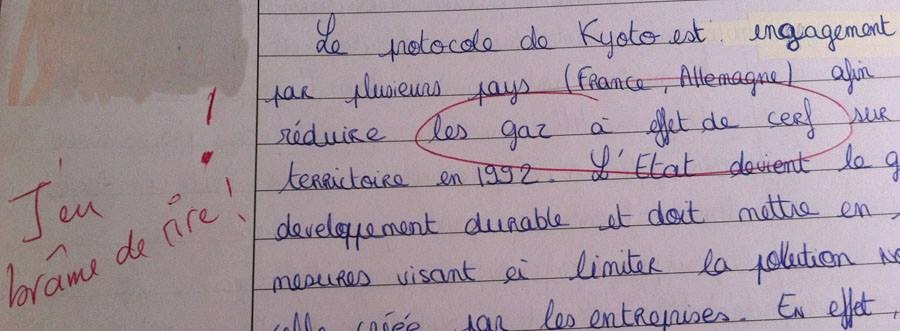 Le protocole de Kyoto est engagement
par plusieurs pays (France, Allemagne) afin
réduire les gaz à effet de cerf sur
territoire en 1992. L'Etat devient le g
developpement durable et doit mettre en
mesures visant à limiter la pollution
créée par les entreprises. En effet,
!
J'en
brâme de rire!